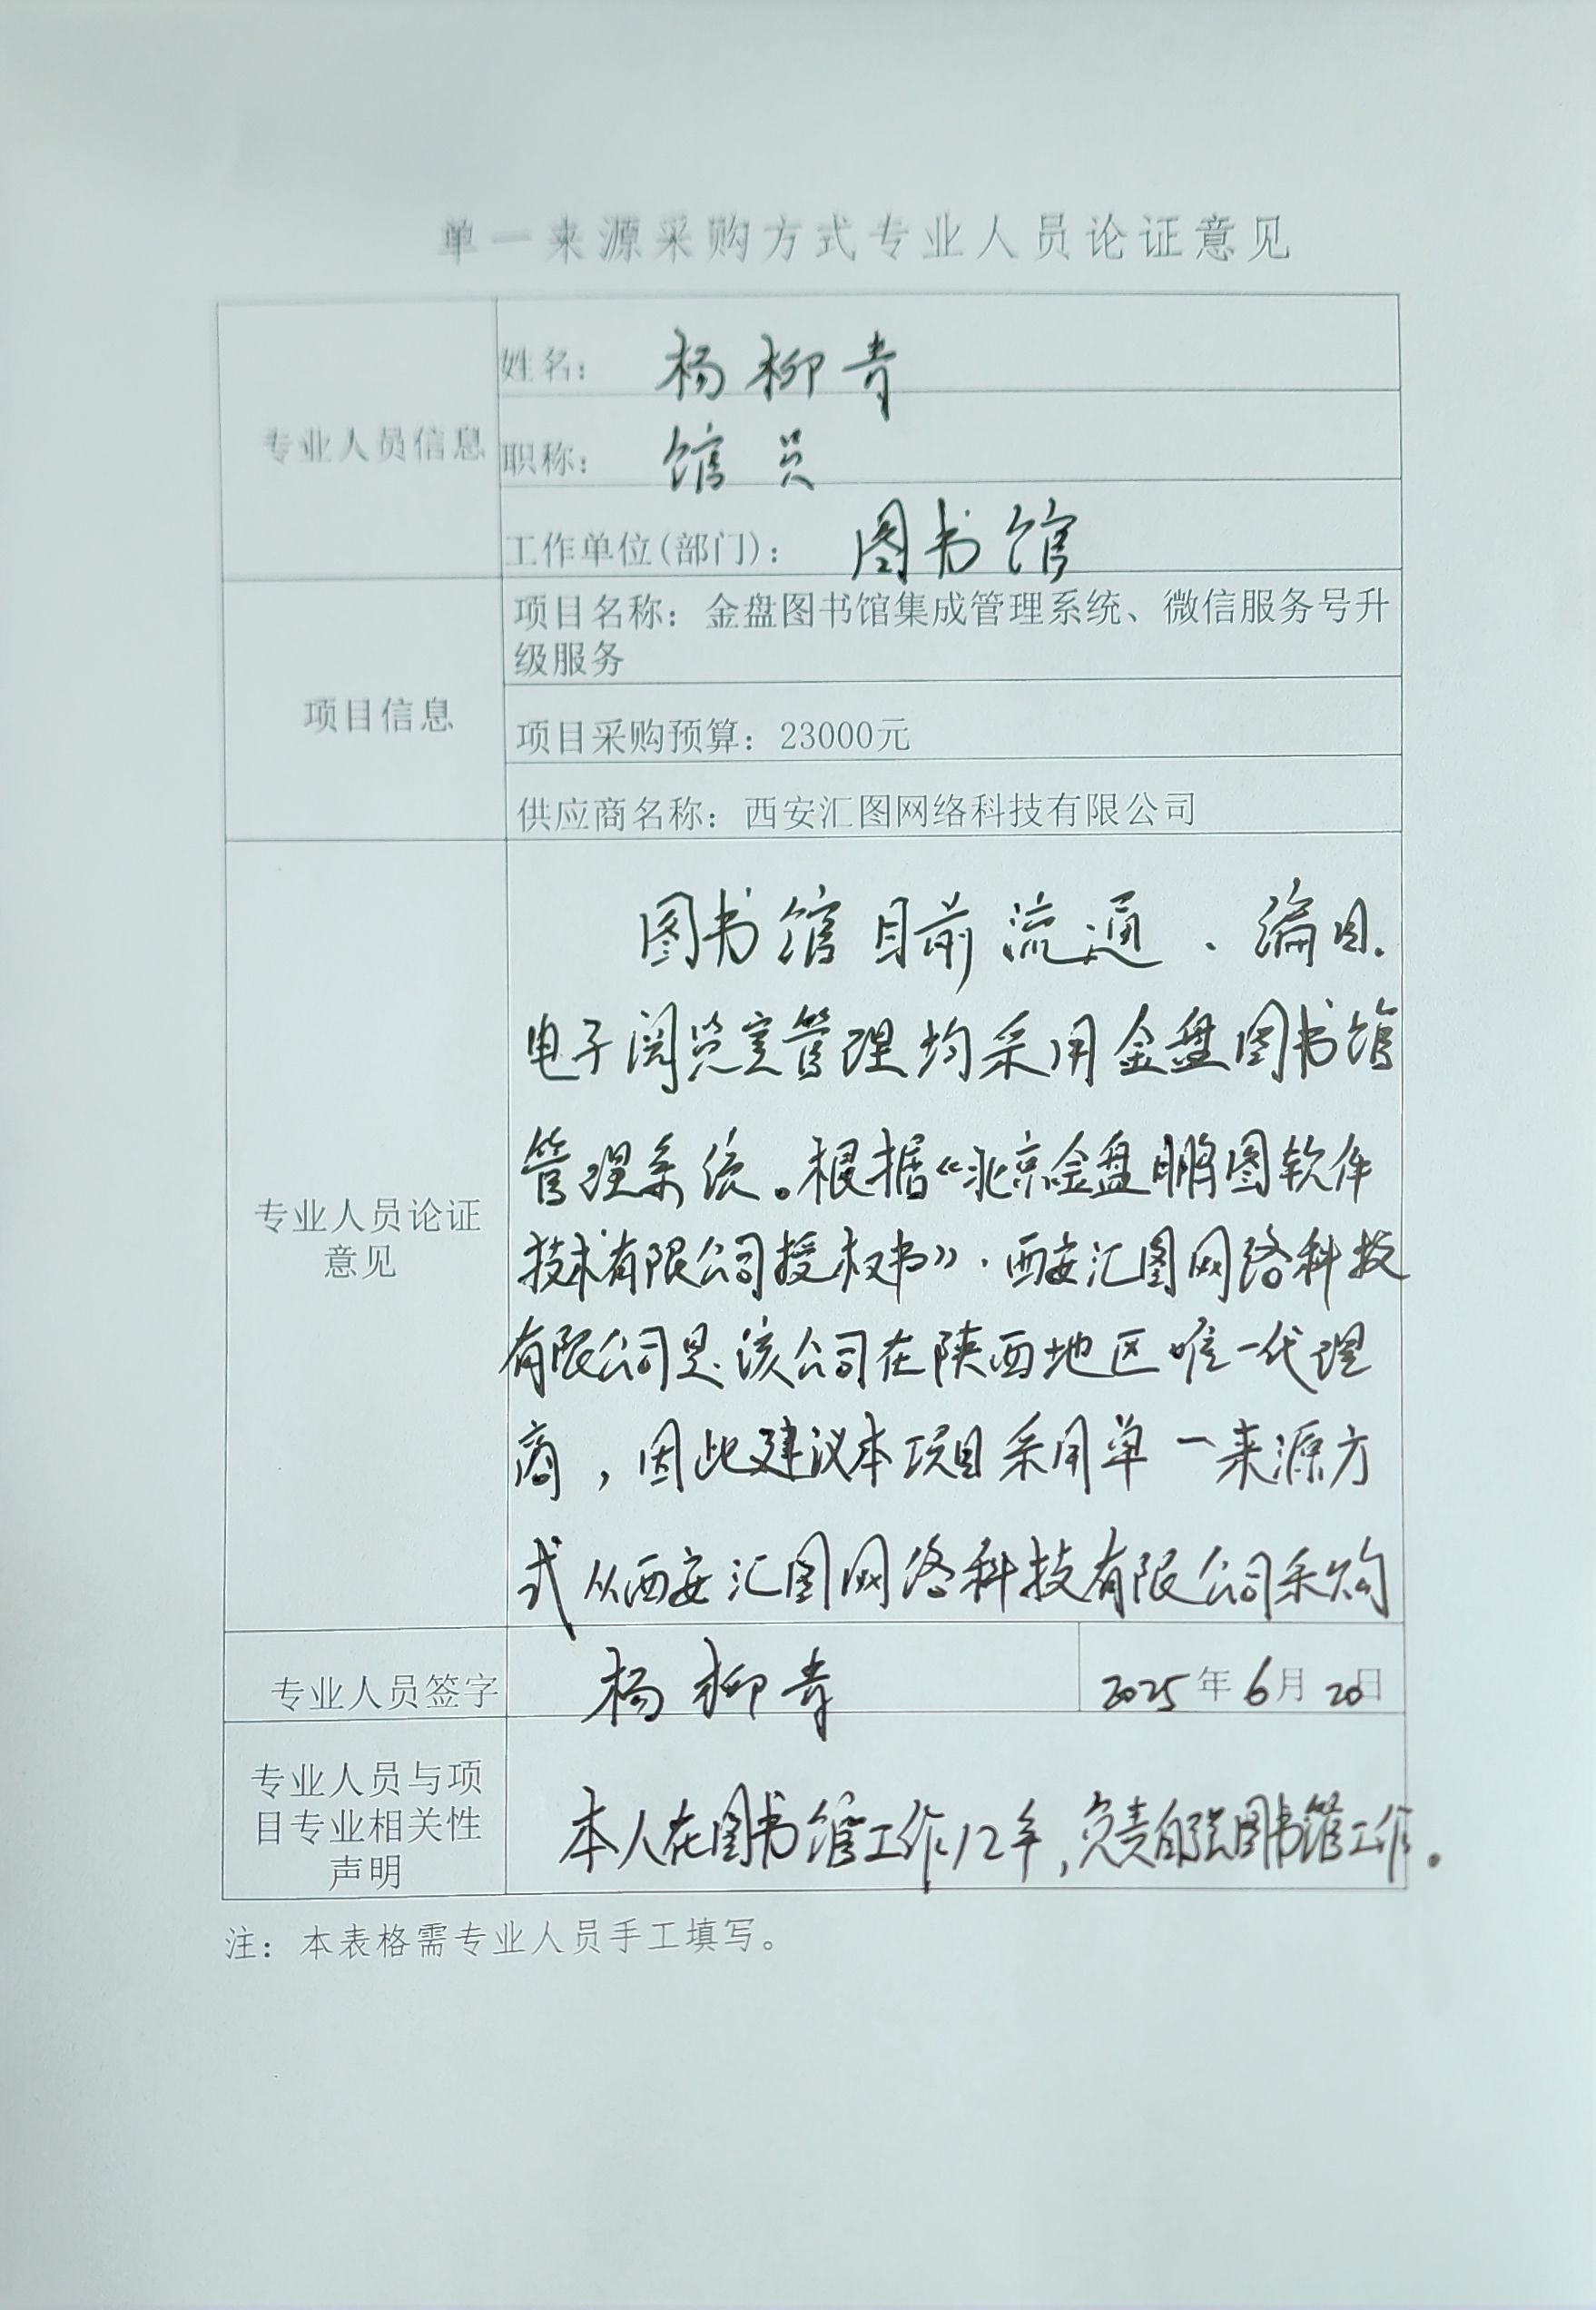 单一来源采购方式专业人员论证意见
专业人员信息
姓名： 杨柳青
职称： 馆员
工作单位(部门)： 图书馆
项目信息
项目名称：金盘图书馆集成管理系统、微信服务号升
级服务
项目采购预算：23000元
供应商名称：西安汇图网络科技有限公司
专业人员论证
意见
图书馆目前流通、编目、
电子阅览室管理均采用金盘图书馆
管理系统。根据《北京金盘鹏图软件
技术有限公司授权书》，西安汇图网络科技
有限公司是该公司在陕西地区唯一代理
商，因此建议本项目采用单一来源方
式从西安汇图网络科技有限公司采购
专业人员签字 杨柳青 2025年6月20日
专业人员与项
目专业相关性
声明
本人在图书馆工作12年，负责自强图书馆工作。
注：本表格需专业人员手工填写。